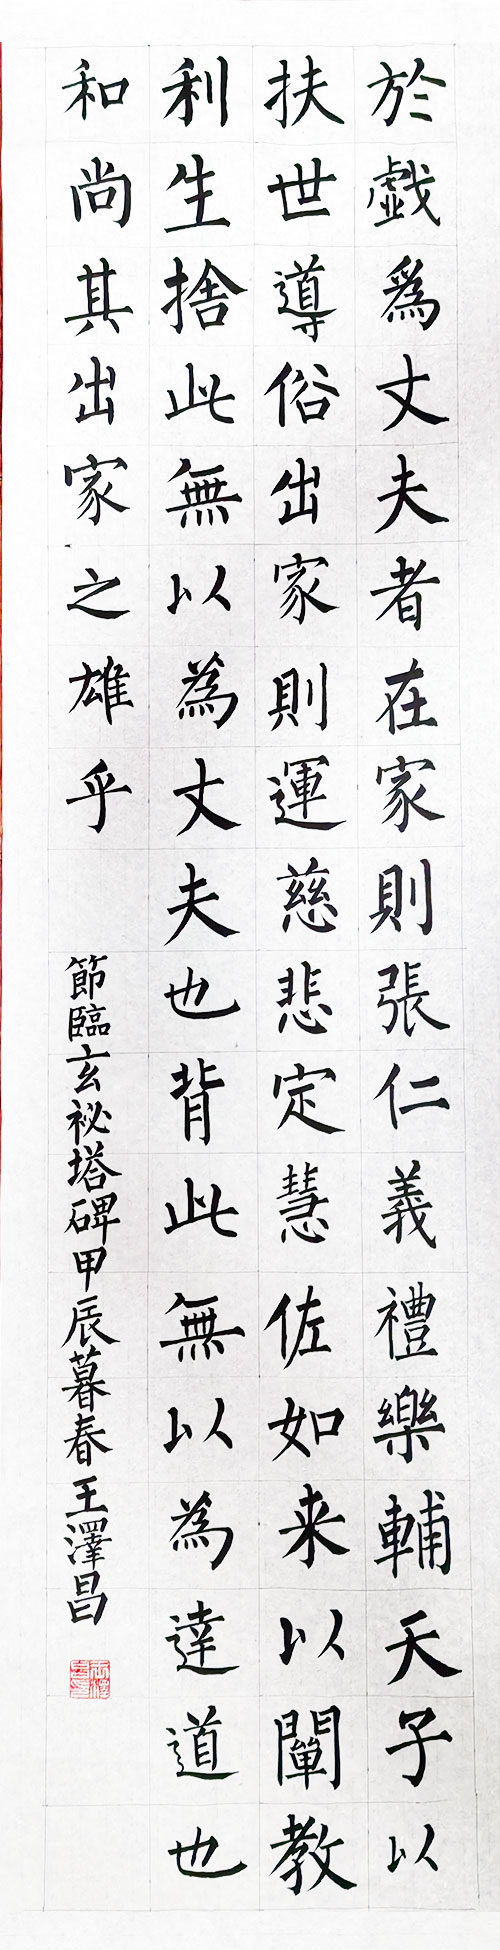 於戲爲丈夫者在家則張仁義禮樂輔天子以
扶世導俗出家則運慈悲定慧佐如来以闡教
利生捨此無以為丈夫也背此無以為達道也
和尚其出家之雄乎
節臨玄祕塔碑甲辰暮春王澤昌